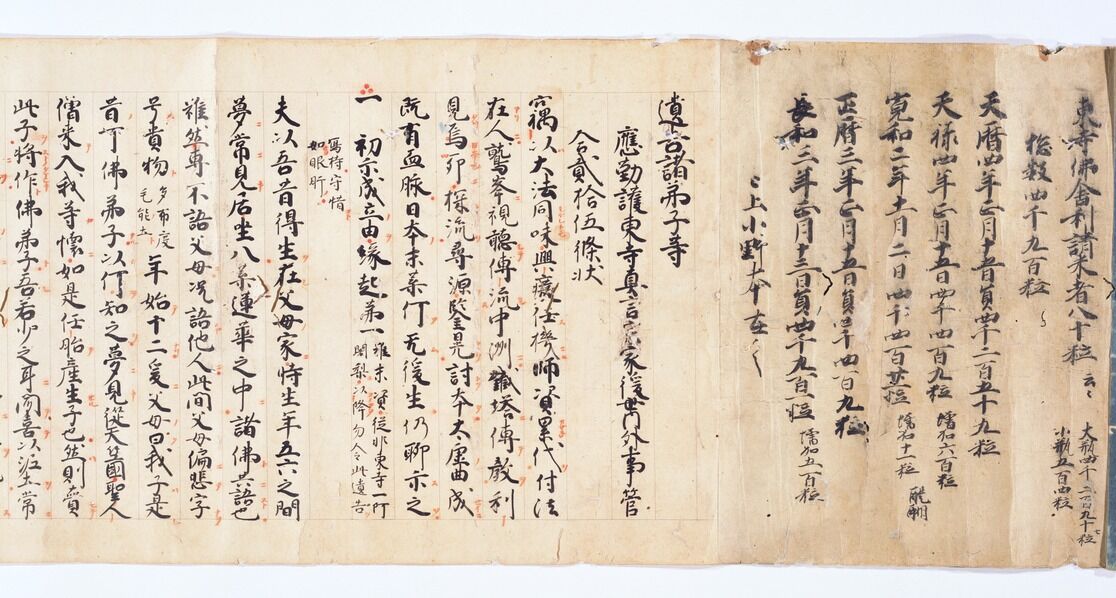 東寺佛舎利請来者八十粒 云々
大瓶四千二百九十七粒
小瓶五百四粒
後数四千九百粒
天暦四年正月十五日員四千二百五十九粒
天禄四年正月十五日四千四百九粒 増加六百粒
寛和二年十一月二日四千四百廿粒 増加十一粒
醍醐
正暦三年正月十五日員四千四百九粒
長和三年正月十三日員四千九百六粒 増加五百粒
已上小野本在之
遺告諸弟子等
應勤護東寺真言宗家後世内外事管
合貳拾伍條状
竊以大法同味興癈任機師資累代付法
在人鷲峯視聴傳流中洲鐵塔傳教利
見焉卯探流尋源暨晃討本太虚成
既有血脉日本末葉何无後生仍聊示之
一 初示成立由縁起第一 雖末資従非東寺一阿
闍梨以降勿令此遺告
寫持守惜
如眼肝
夫以吾昔得生在父母家時生年五六之間
夢常見居坐八葉蓮華之中諸佛共語也
雖然専不語父母况語他人此間父母偏悲字
号貴物 多布度
毛能土 年始十二爰父母曰我子是
昔可佛弟子以何知之夢見従天竺國聖人
僧来入我等懐如是任胎産生子也然則賷
此子将作佛弟子吾若少之耳聞喜以埿土常